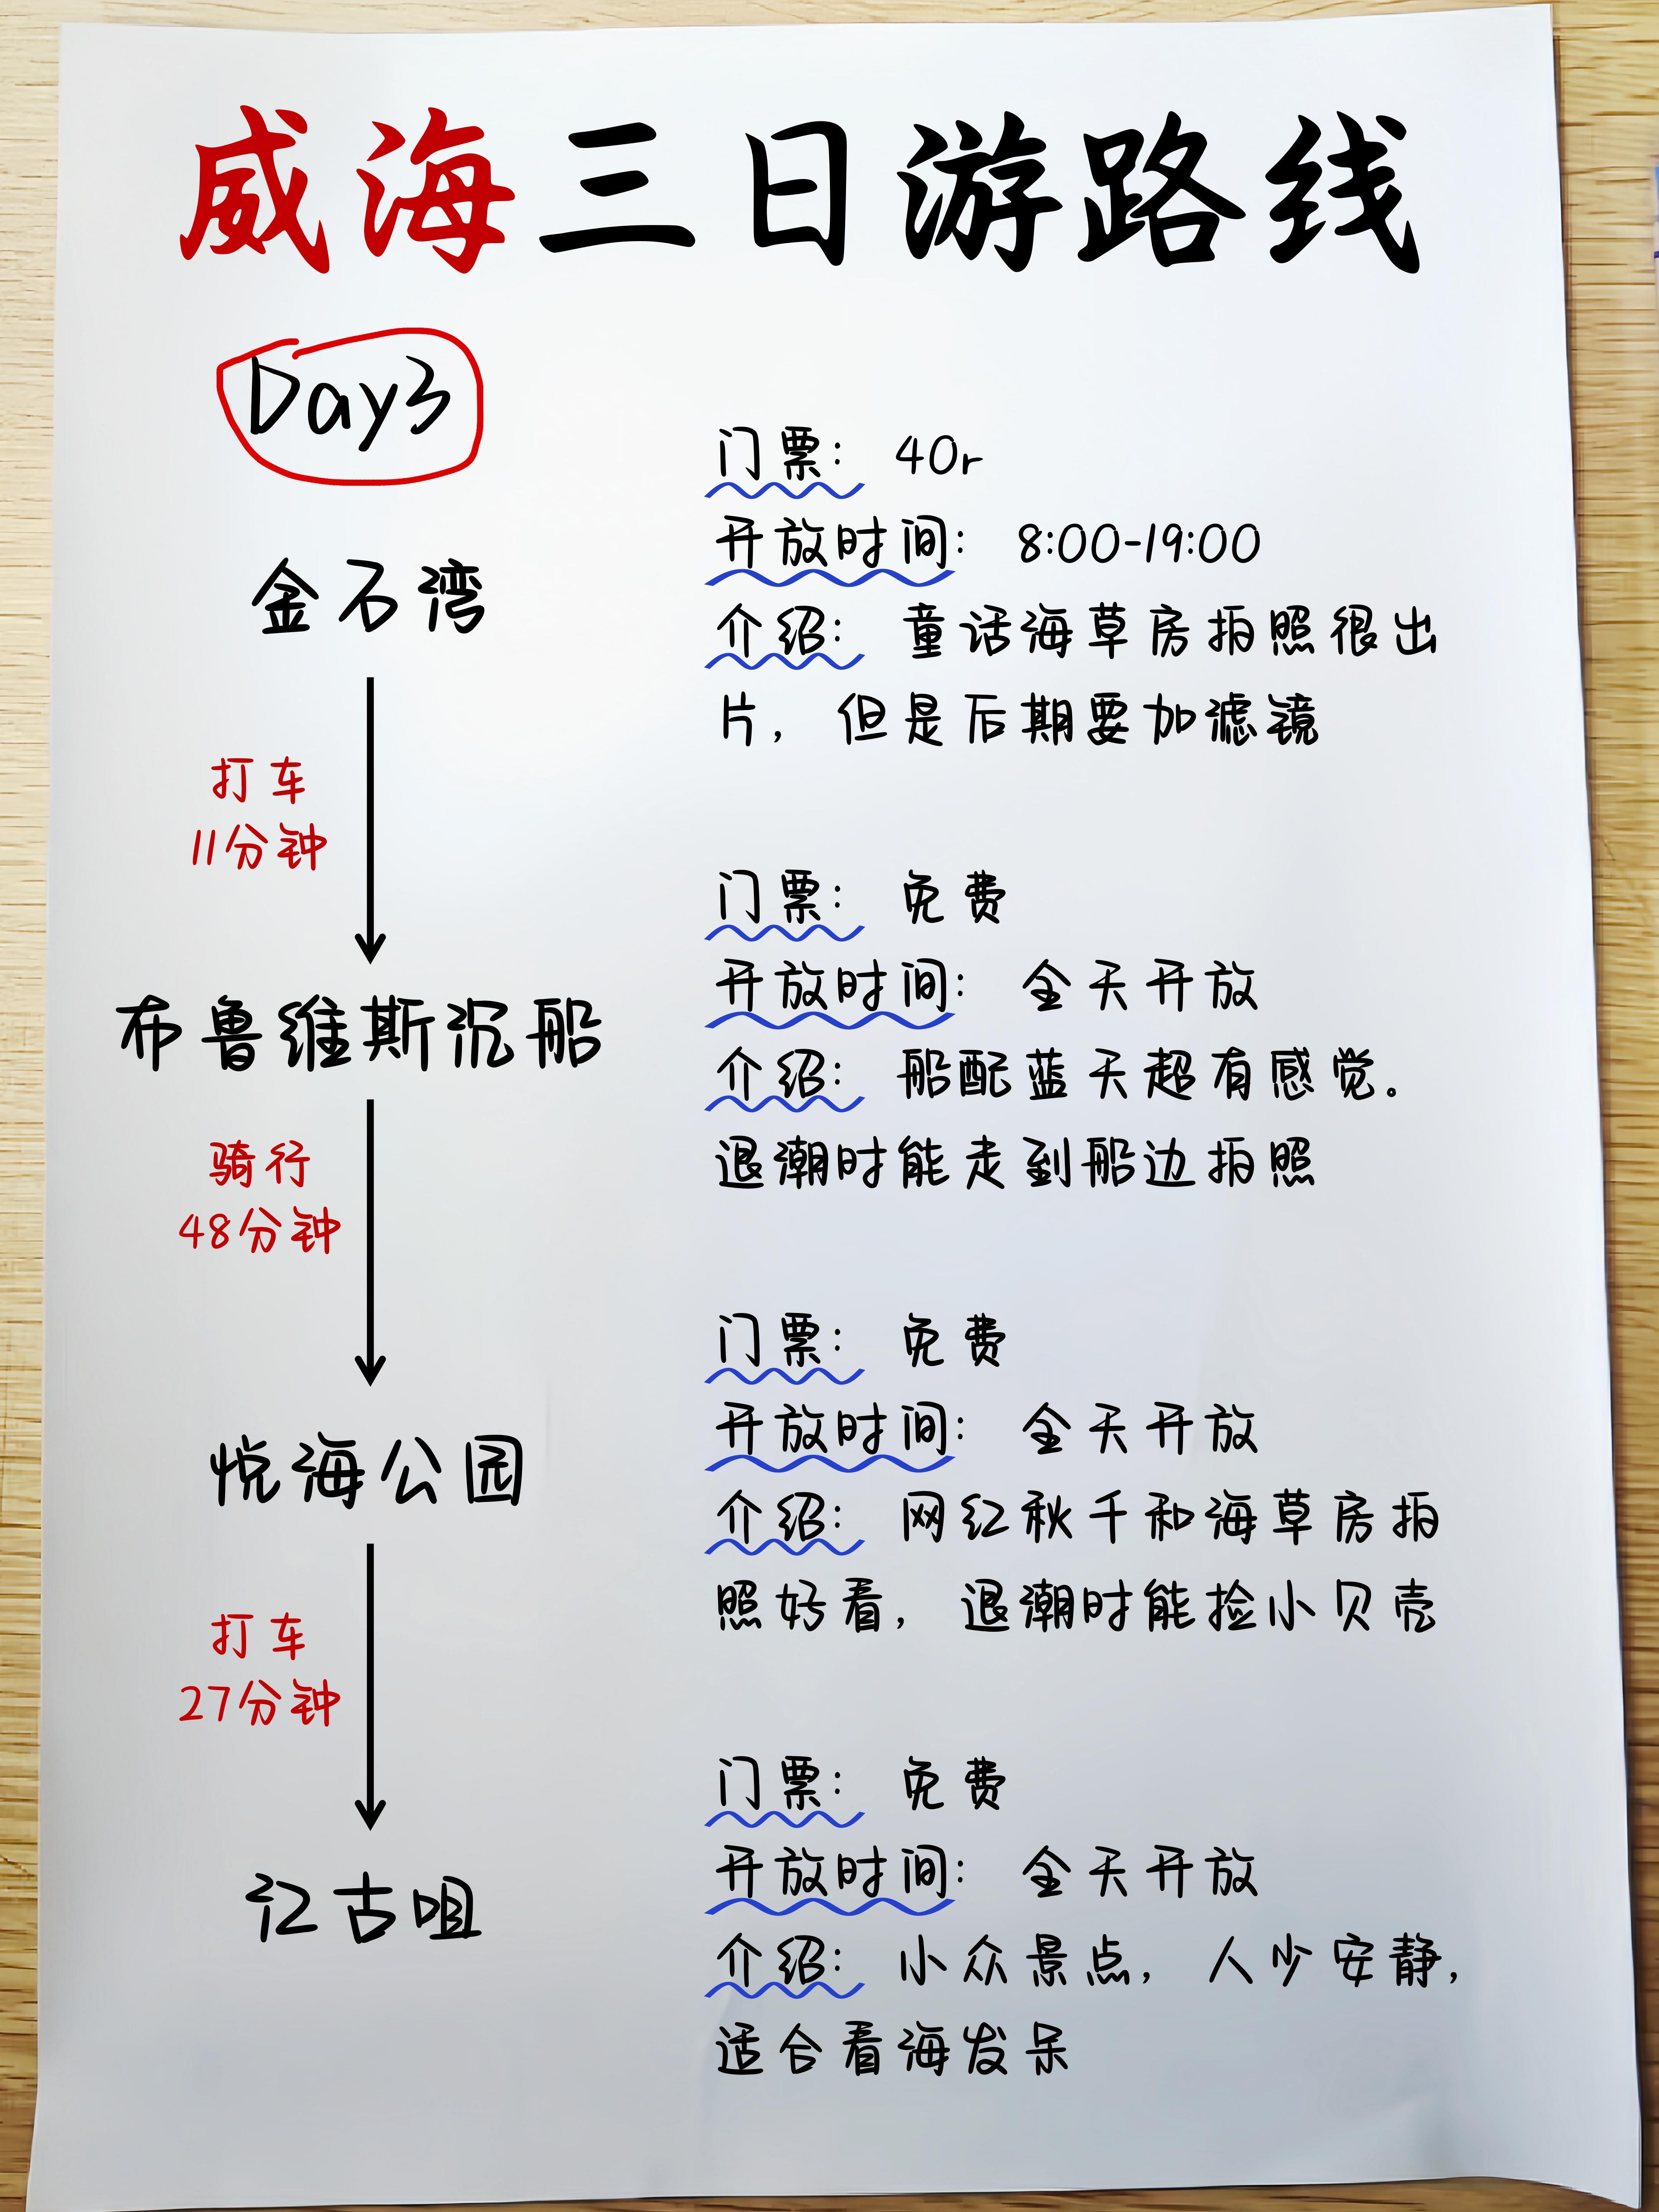 威海三日游路线
Day3
门票： 40r
开放时间： 8:00-19:00
金石湾
介绍： 童话海草房拍照很出
片，但是后期要加滤镜
打车
11分钟
门票： 免费
开放时间： 全天开放
布鲁维斯沉船
介绍： 船配蓝天超有感觉。
退潮时能走到船边拍照
骑行
48分钟
门票： 免费
开放时间： 全天开放
悦海公园
介绍： 网红秋千和海草房拍
照好看，退潮时能捡小贝壳
打车
27分钟
门票： 免费
开放时间： 全天开放
江古咀
介绍： 小众景点，人少安静，
适合看海发呆